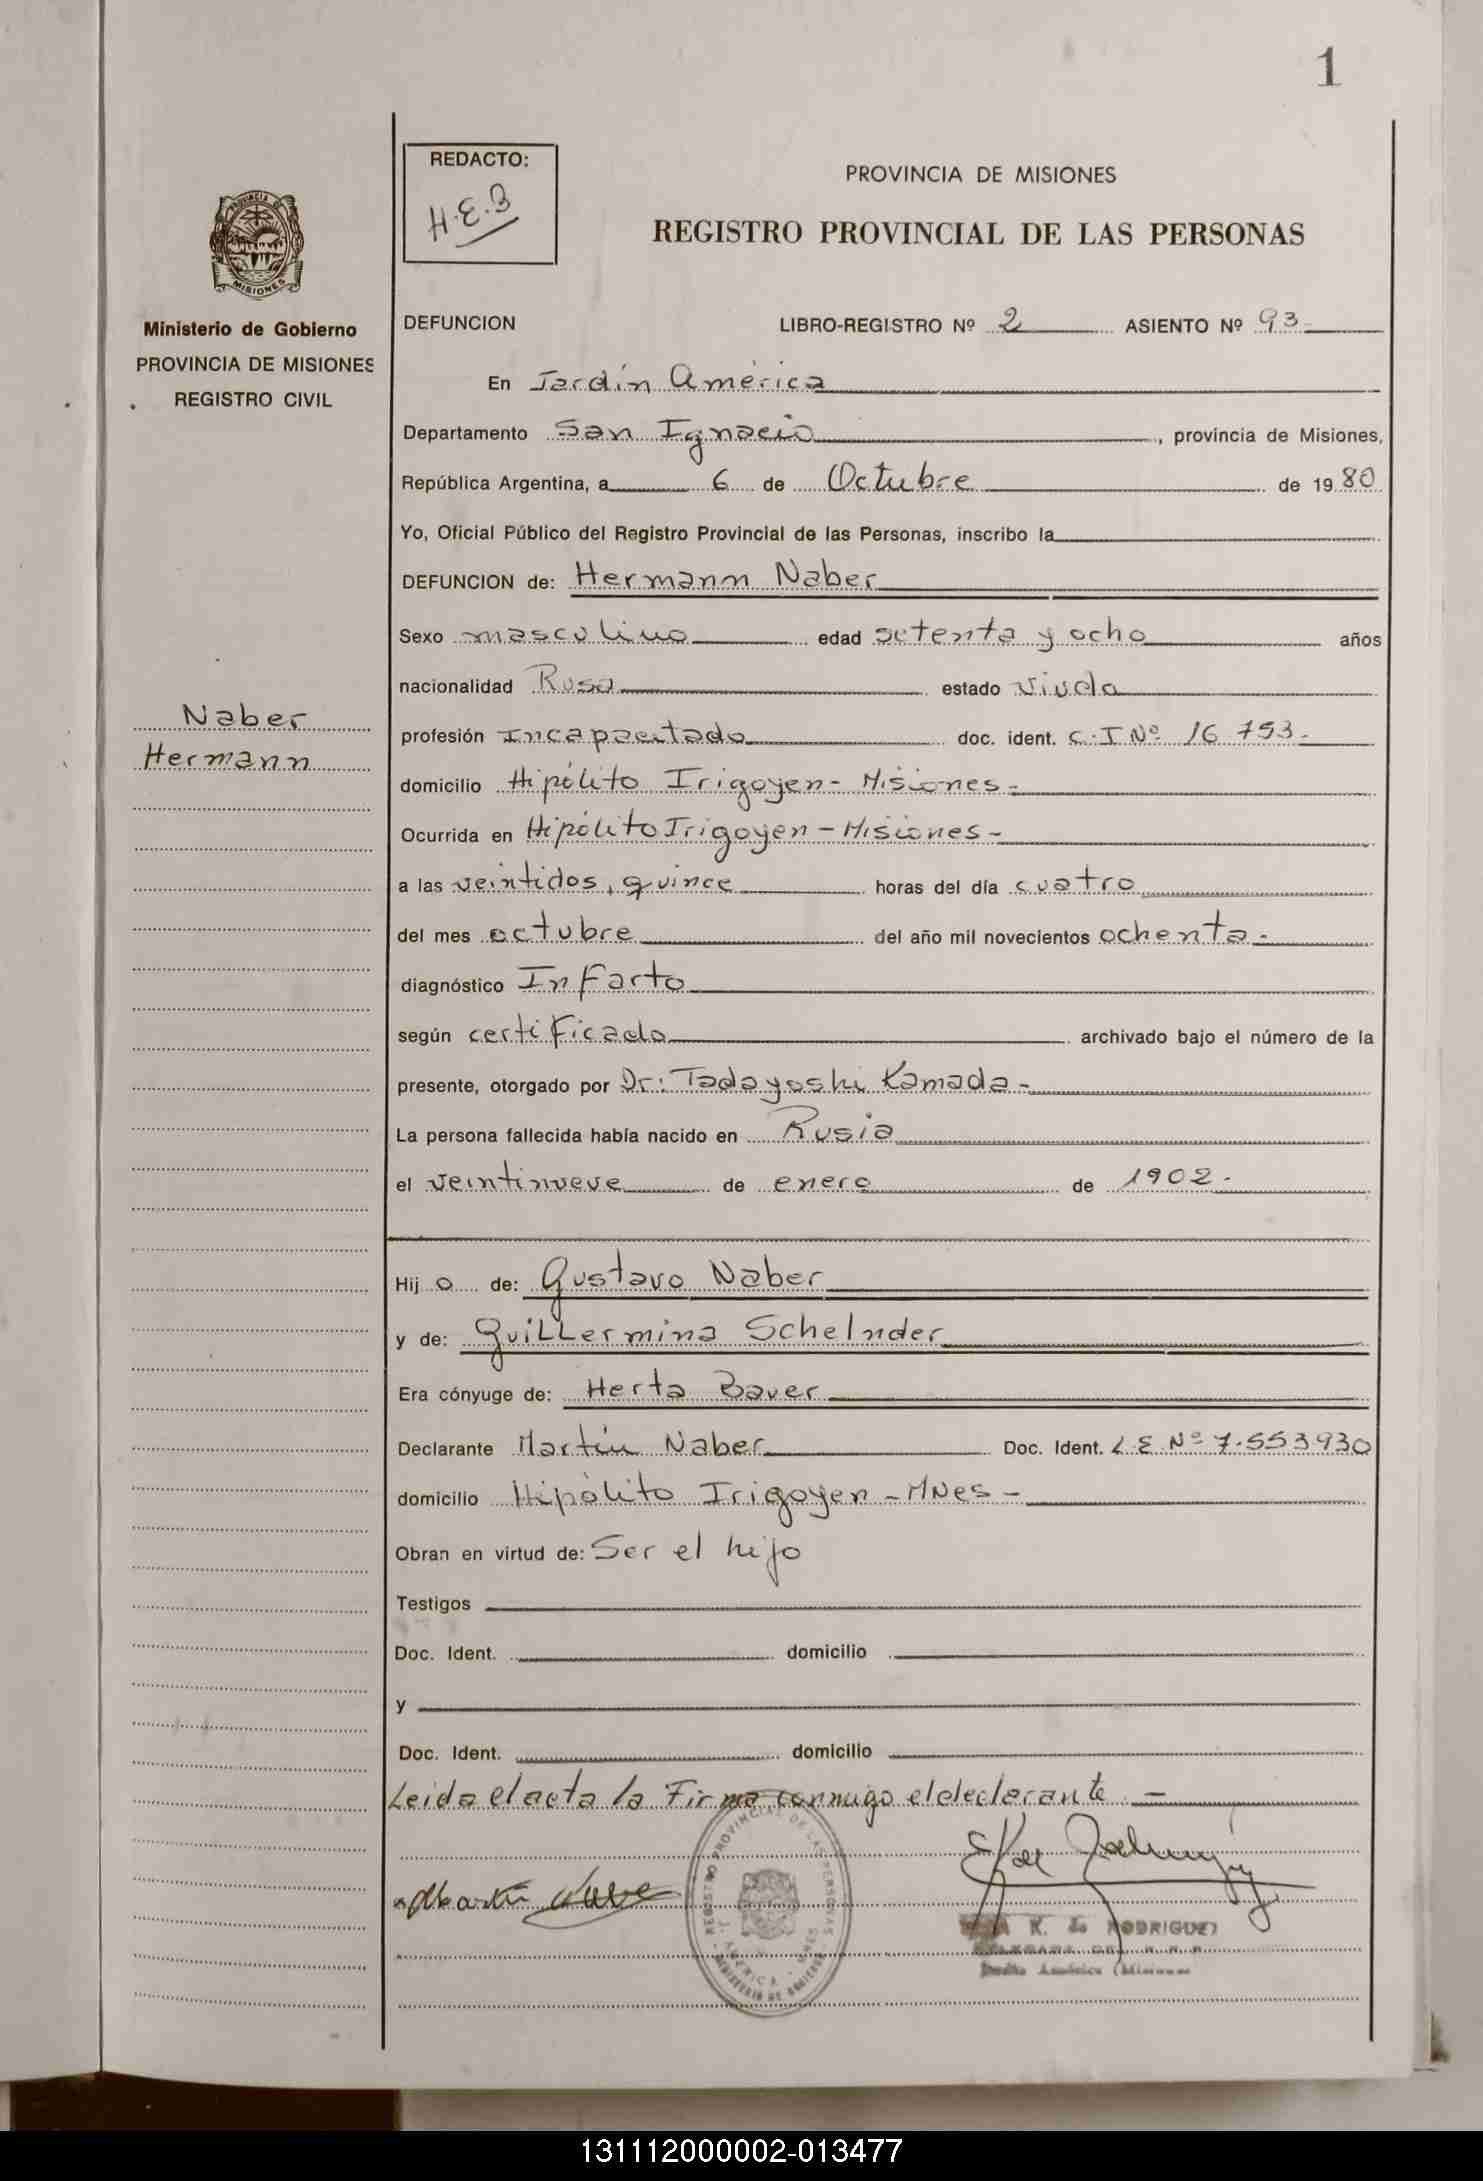 1
REDACTO:
H.E.B
PROVINCIA DE MISIONES
REGISTRO PROVINCIAL DE LAS PERSONAS
PROVINCIA DE
MISIONES
Ministerio de Gobierno
PROVINCIA DE MISIONES
REGISTRO CIVIL
DEFUNCION LIBRO-REGISTRO Nº 2 ASIENTO Nº 93
En Jardín América
Departamento San Ignacio, provincia de Misiones,
República Argentina, a 6 de Octubre de 1980
Yo, Oficial Público del Registro Provincial de las Personas, inscribo la
DEFUNCION de: Hermann Naber
Sexo masculino edad setenta y ocho años
nacionalidad Rusa estado viudo
Naber
Hermann
profesión Incapacitado doc. ident. C.I Nº 16 753.
domicilio Hipólito Irigoyen - Misiones -
Ocurrida en Hipólito Irigoyen - Misiones -
a las veintidos, quince horas del día cuatro
del mes octubre del año mil novecientos ochenta -
diagnóstico Infarto
según certificado archivado bajo el número de la
presente, otorgado por Dr: Tadayoshi Kamada -
La persona fallecida había nacido en Rusia
el veintinueve de enero de 1902.
Hijo de: Gustavo Naber
y de: Guillermina Schelnder
Era cónyuge de: Herta Bauer
Declarante Martín Naber Doc. Ident. L E Nº 7.553930
domicilio Hipólito Irigoyen - MNes -
Obran en virtud de: Ser el hijo
Testigos
Doc. Ident. domicilio
y
Doc. Ident. domicilio
Leida el acta la Firma conmigo el declarante. -
REGISTRO PROVINCIAL DE LAS PERSONAS
K. de RODRIGUEZ
131112000002-013477